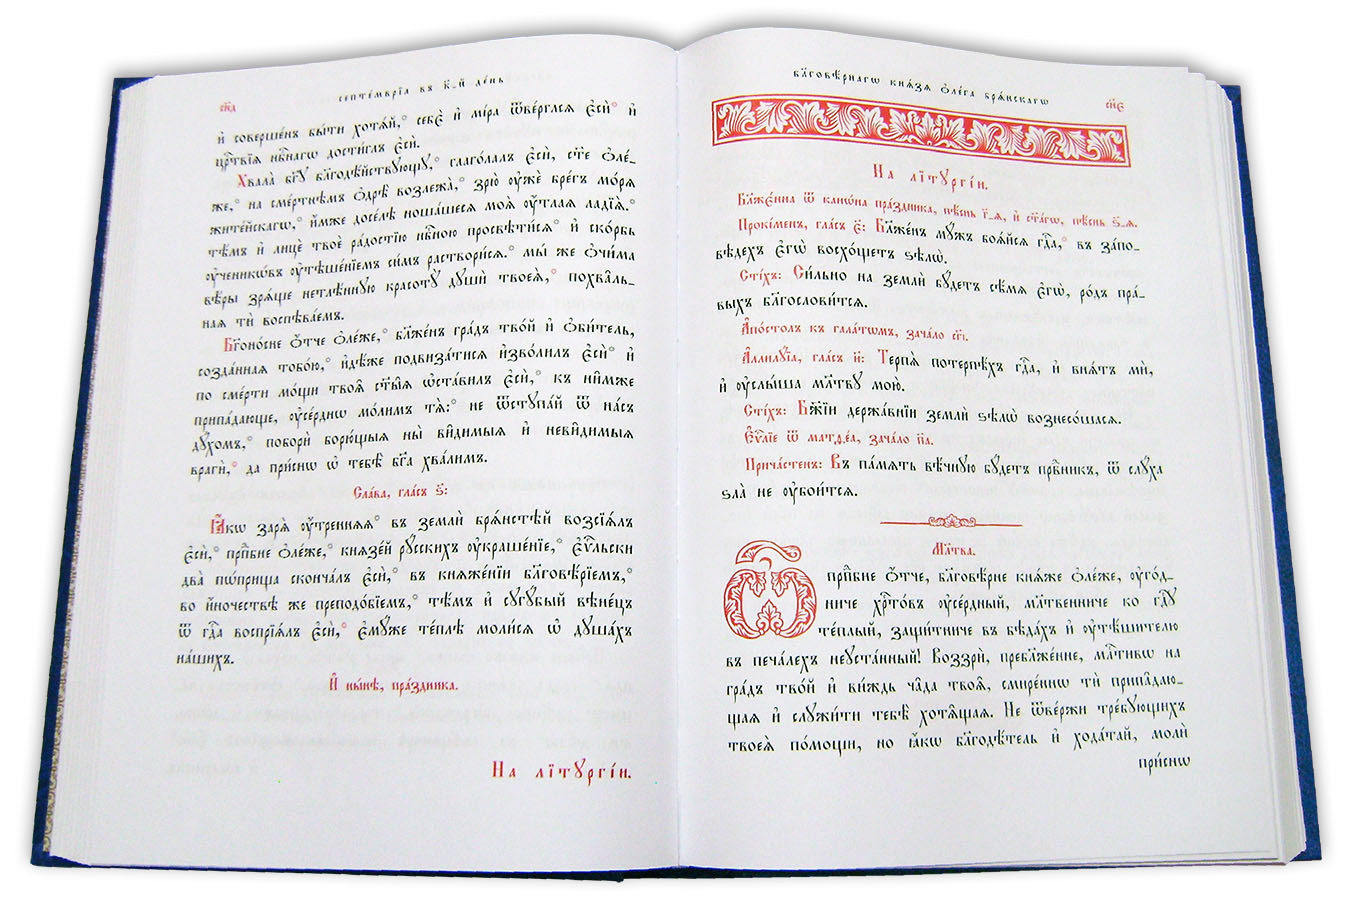 сн҃д
септе́мврїа въ к҃_й де́нь
и҆ соверше́нъ бы́ти хотѧ́й, себѐ и҆ мі́ра ѿве́рглсѧ є҆сѝ и҆
црⷭ҇твїѧ нбⷭ҇нагѡ дости́глъ є҆сѝ.
Хвала̀ бг҃ꙋ бл҃годѣ́йствꙋющꙋ, глаго́лалъ є҆сѝ, ст҃е ѻ҆ле́_
же, на сме́ртнѣмъ ѻ҆дрѣ̀ возлежа̀, зрю̀ ᲂу҆жѐ бре́гъ мо́рѧ
жите́йскагѡ, и҆́мже досе́лѣ ноша́шесѧ моѧ̀ ᲂу҆́тлаѧ ладїѧ̀.
тѣ́мъ и҆ лицѐ твоѐ ра́достїю нбⷭ҇ною просвѣти́сѧ и҆ ско́рбь
ᲂу҆ченикѡ́въ ᲂу҆тѣше́нїемъ си́мъ раствори́сѧ. мы́ же ѻ҆чи́ма
вѣ́ры зрѧ́ще нетлѣ́ннꙋю красотꙋ̀ дꙋшѝ твоеѧ̀, похва́ль_
наѧ тѝ воспѣва́емъ.
Бг҃оно́сне ѻ҆́тче ѻ҆ле́же, бл҃же́нъ гра́дъ тво́й и҆ ѻ҆би́тель,
со́зданнаѧ тобо́ю, и҆дѣ́же подвиза́тисѧ и҆зво́лилъ є҆сѝ и҆
по сме́рти мо́щи твоѧ̑ ст҃ы̑ѧ ѡ҆ста́вилъ є҆сѝ, къ ни̑мже
припа́дающе, ᲂу҆се́рднѡ мо́лимъ тѧ̀: не ѿстꙋпа́й ѿ на́съ
дꙋ́хомъ, поборѝ борю́щыѧ ны̀ ви̑димыѧ и҆ неви̑димыѧ
врагѝ, да при́снѡ ѡ҆ тебѣ̀ бг҃а хва́лимъ.
Сла́ва, гла́съ ѕ҃:
Ꙗ҆́кѡ зарѧ̀ ᲂу҆́треннѧѧ въ землѝ брѧ́нстѣй возсїѧ́лъ
є҆сѝ, прпⷣбне ѻ҆ле́же, кнѧзе́й рꙋ́сскихъ ᲂу҆краше́нїе, є҆ѵⷢ҇льски
два̀ пѡ́прища сконча́лъ є҆сѝ, въ кнѧже́нїи бл҃гове́рїемъ,
во и҆́ночествѣ же преподо́бїемъ, тѣ́мъ и҆ сꙋгꙋ́бый вѣне́цъ
ѿ гдⷭ҇а воспрїѧ́лъ є҆сѝ, є҆мꙋ́же те́плѣ моли́сѧ ѡ҆ дꙋша́хъ
на́шихъ.
И҆ ны́нѣ, пра́здника.
На лїтꙋргі́и.
бл҃гове́рнагѡ кнѧ́зѧ ѻ҆ле́га брѧ́нскагѡ
сн҃є
На лїтꙋргі́и.
Бл҃же́нна ѿ канѡ́на пра́здника, пѣ́снь г҃_ѧ, и҆ ст҃а́гѡ, пѣ́снь ѕ҃_ѧ.
Проки́менъ, гла́съ є҃: Бл҃же́нъ мꙋ́жъ боѧ́йсѧ гдⷭ҇а, въ за́по_
вѣдехъ є҆гѡ̀ восхо́щетъ ѕѣлѡ̀.
Сті́хъ: Си́льно на землѝ бꙋ́детъ сѣ́мѧ є҆гѡ̀, ро́дъ пра́_
выхъ бл҃гослови́тсѧ.
А҆по́столъ къ гала́тѡмъ, зача́ло сг҃і.
А҆ллилꙋ́їа, гла́съ и҃: Терпѧ̀ потерпѣ́хъ гдⷭ҇а, и҆ внѧ́тъ мѝ,
и҆ ᲂу҆слы́ша мл҃твꙋ мою̀.
Сті́хъ: Бж҃їи держа́внїи землѝ ѕѣлѡ̀ вознесо́шасѧ.
Є҆ѵⷢ҇лїе ѿ матѳе́а, зача́ло м҃а.
Прича́стенъ: Въ па́мѧть вѣ́чнꙋю бꙋ́детъ првⷣникъ, ѿ слꙋ́ха
ѕла̀ не ᲂу҆бои́тсѧ.
Мл҃тва.
Ѽ прпⷣбне ѻ҆́тче, бл҃гове́рне кнѧ́же ѻ҆ле́же, ᲂу҆го́д_
ниче хрⷭ҇то́въ ᲂу҆се́рдный, мл҃твенниче ко гдⷭ҇ꙋ
те́плый, защи́тниче въ бѣда́хъ и҆ ᲂу҆тѣ́шителю
въ печа́лехъ неꙋста́нный! Воззрѝ, пребл҃же́нне, млⷭ҇тивѡ на
гра́дъ тво́й и҆ ви́ждь ча̑да твоѧ̑, смире́ннѡ тѝ припа̑даю_
щаѧ и҆ слꙋжи́ти тебѣ̀ хотѧ̑щаѧ. Не ѿве́ржи тре́бꙋющихъ
твоеѧ̀ по́мощи, но ꙗ҆́кѡ бл҃годѣ́тель и҆ хода́тай, молѝ
при́снѡ